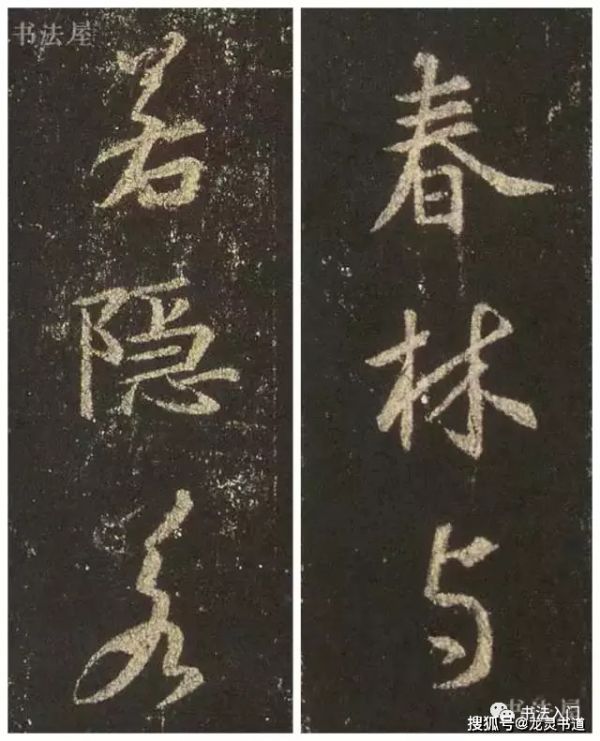 书法屋
春林与
若隐
书法入门
搜狐号@龙灵书道